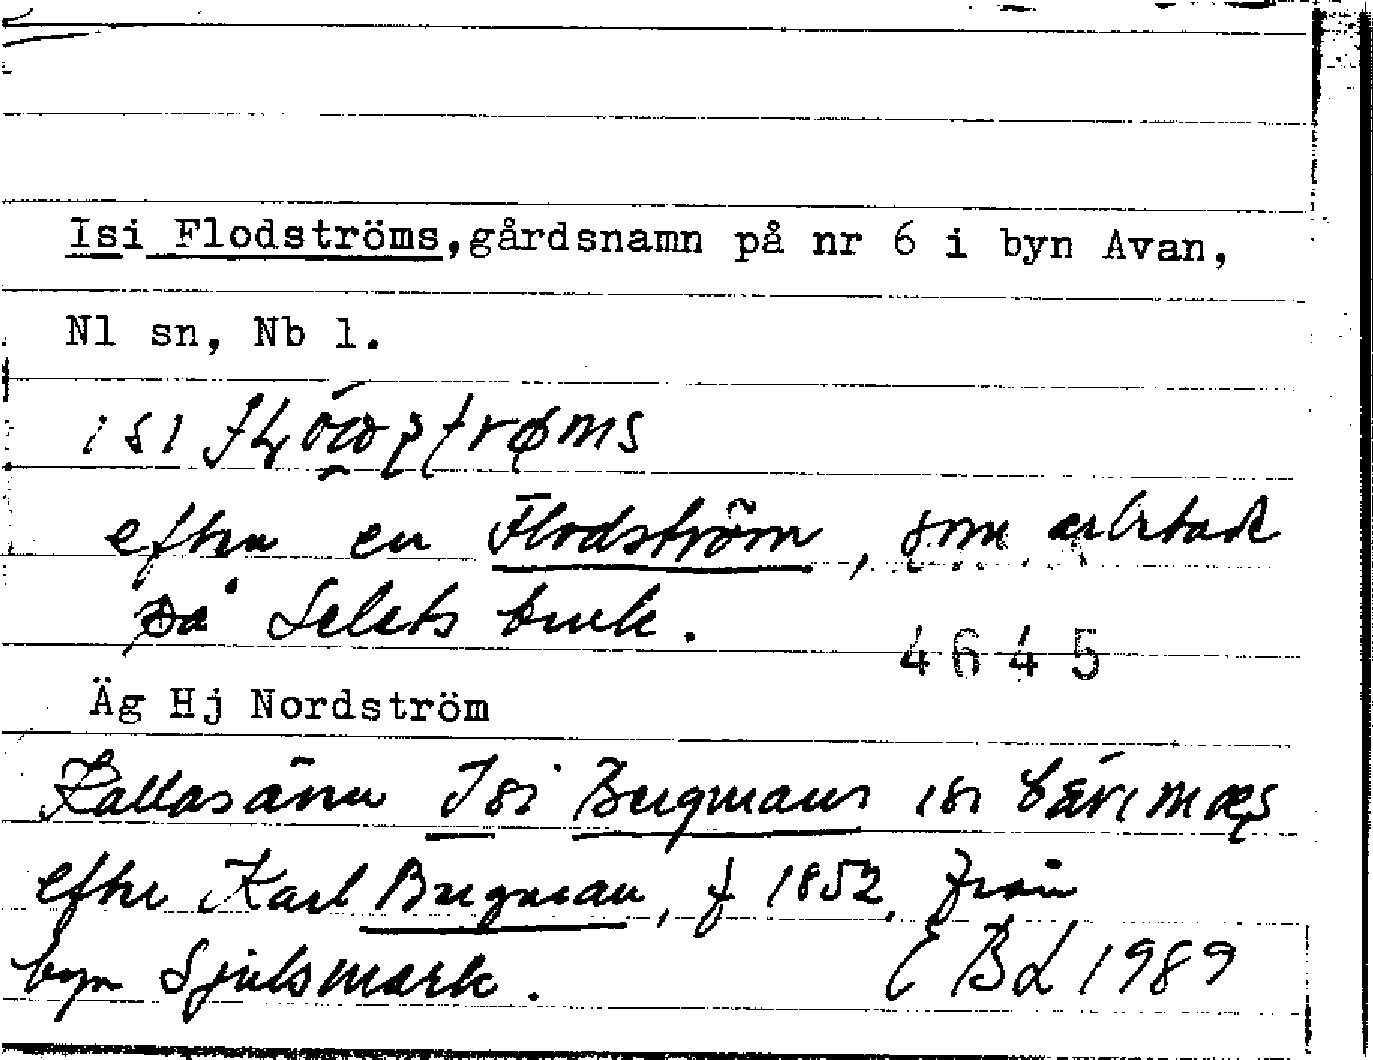 Isi Flodströms, gårdsnamn på nr 6 i byn Avan,
Nl sn, Nb l.
isi
efter en Flodström, som arbetade
på Selets bruk.
4645
Äg Hj Nordström
Kallas även Isi Bergmans isi
efter Karl Bergman, f 1852, från
byn Sjulsmark.
E B L 1989